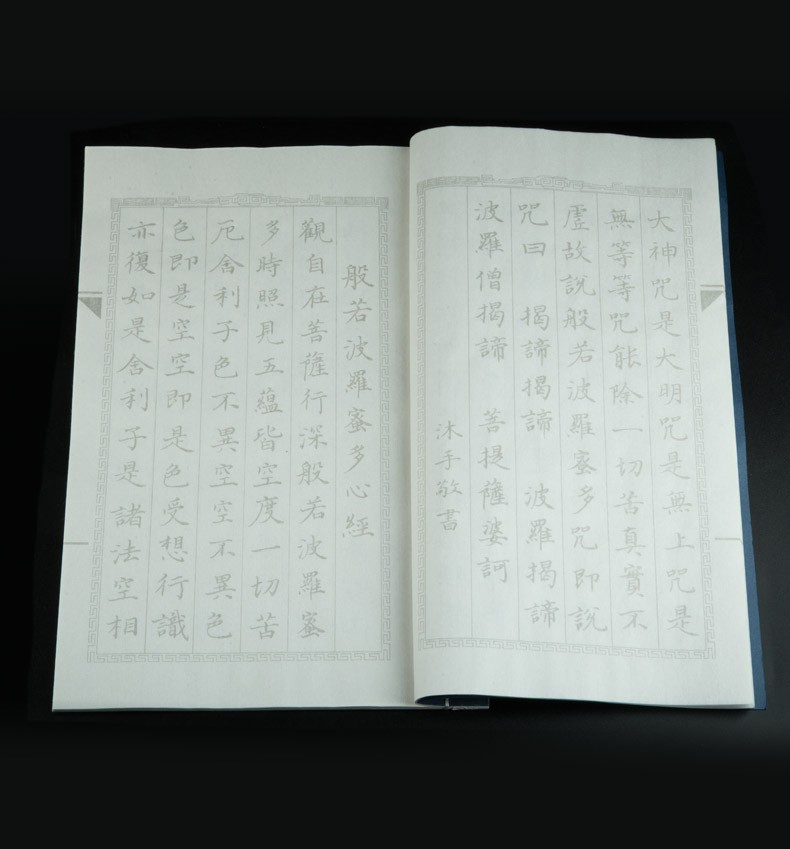 大神咒是大明咒是無上咒是
無等等咒能除一切苦真實不
虛故說般若波羅蜜多咒即說
咒曰 揭諦揭諦 波羅揭諦
波羅僧揭諦 菩提薩婆訶
沐手敬書
般若波羅蜜多心經
觀自在菩薩行深般若波羅蜜
多時照見五蘊皆空度一切苦
厄舍利子色不異空空不異色
色即是空空即是色受想行識
亦復如是舍利子是諸法空相